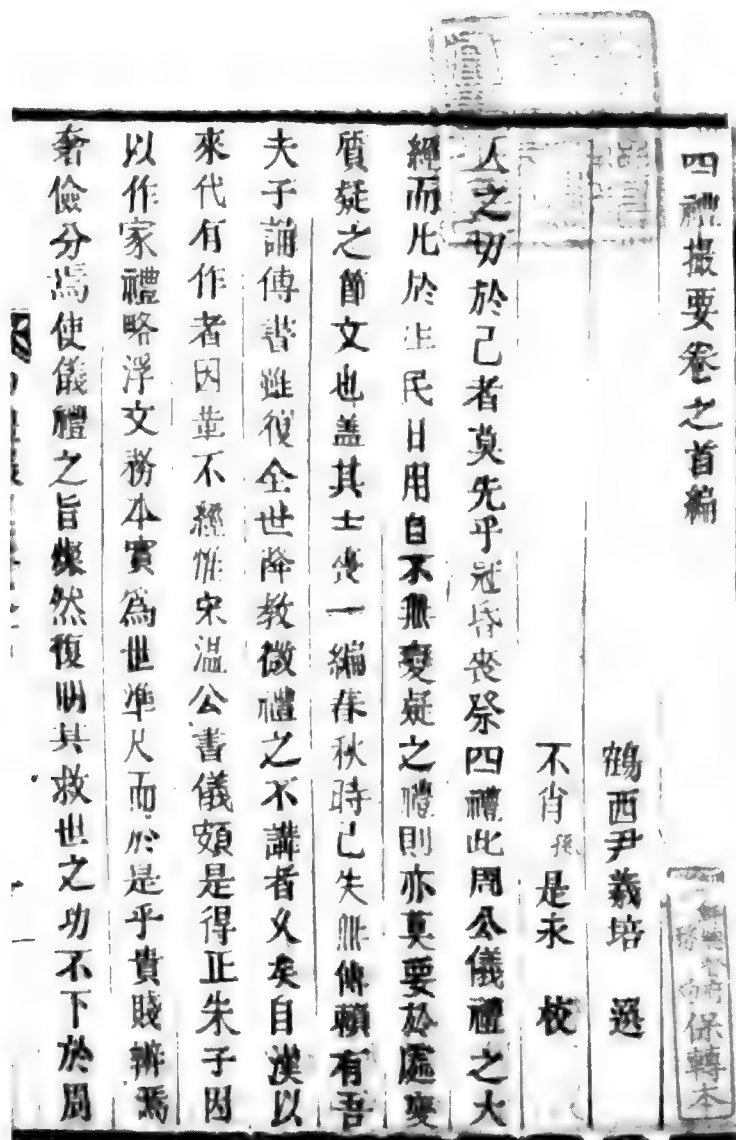 四禮撮要卷之首編
鶴西尹義培 選
不肖孫是永 校
人之切於己者莫先乎冠昏喪祭四禮此周公儀禮之大
經而凡於生民日用自不無變疑之禮則亦莫要於處變
質疑之節文也盖其士喪一編春秋時已失無傳賴有吾
夫子誦傳書雖復全世降敎微禮之不講者久矣自漢以
來代有作者因革不經惟宋溫公書儀頗是得正朱子因
以作家禮略浮文務本實爲世準尺而於是乎貴賤辨焉
奢儉分焉使儀禮之旨燦然復明其救世之功不下於周
保轉本